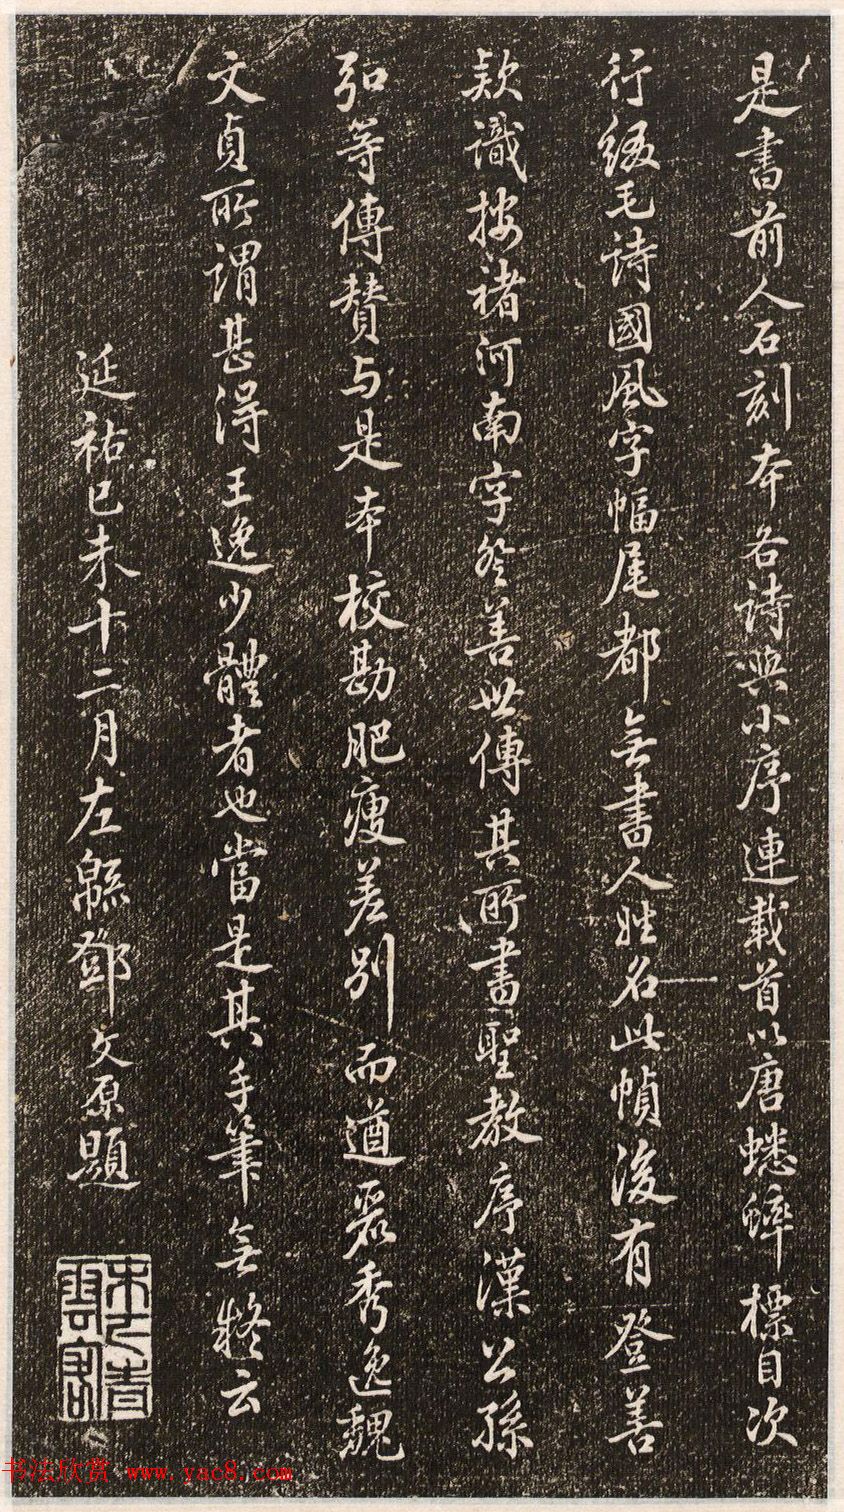 是書前人石刻本各詩與小序連載首以唐蟋蟀標目次
行綴毛詩國風字幅尾都無書人姓名此幀後有登善
款識按褚河南字登善世傳其所書聖教序漢公孫
弘等傳贊与是本校勘肥瘦差别而遒麗秀逸魏
文貞所謂甚得王逸少體者也當是其手筆無疑云
延祐己未十二月左緜鄧文原題
書法欣赏 www.yac8.com